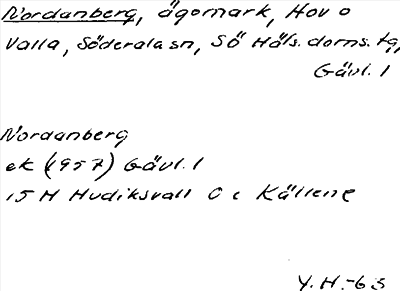 Nordanberg, ägomark, Hov o
Valla, Söderala sn, Sö Häls. doms. tg,
Gävl. l
Nordanberg
ek (1957) Gävl. l
15 H Hudiksvall 0 c Källene
Y.H.-63